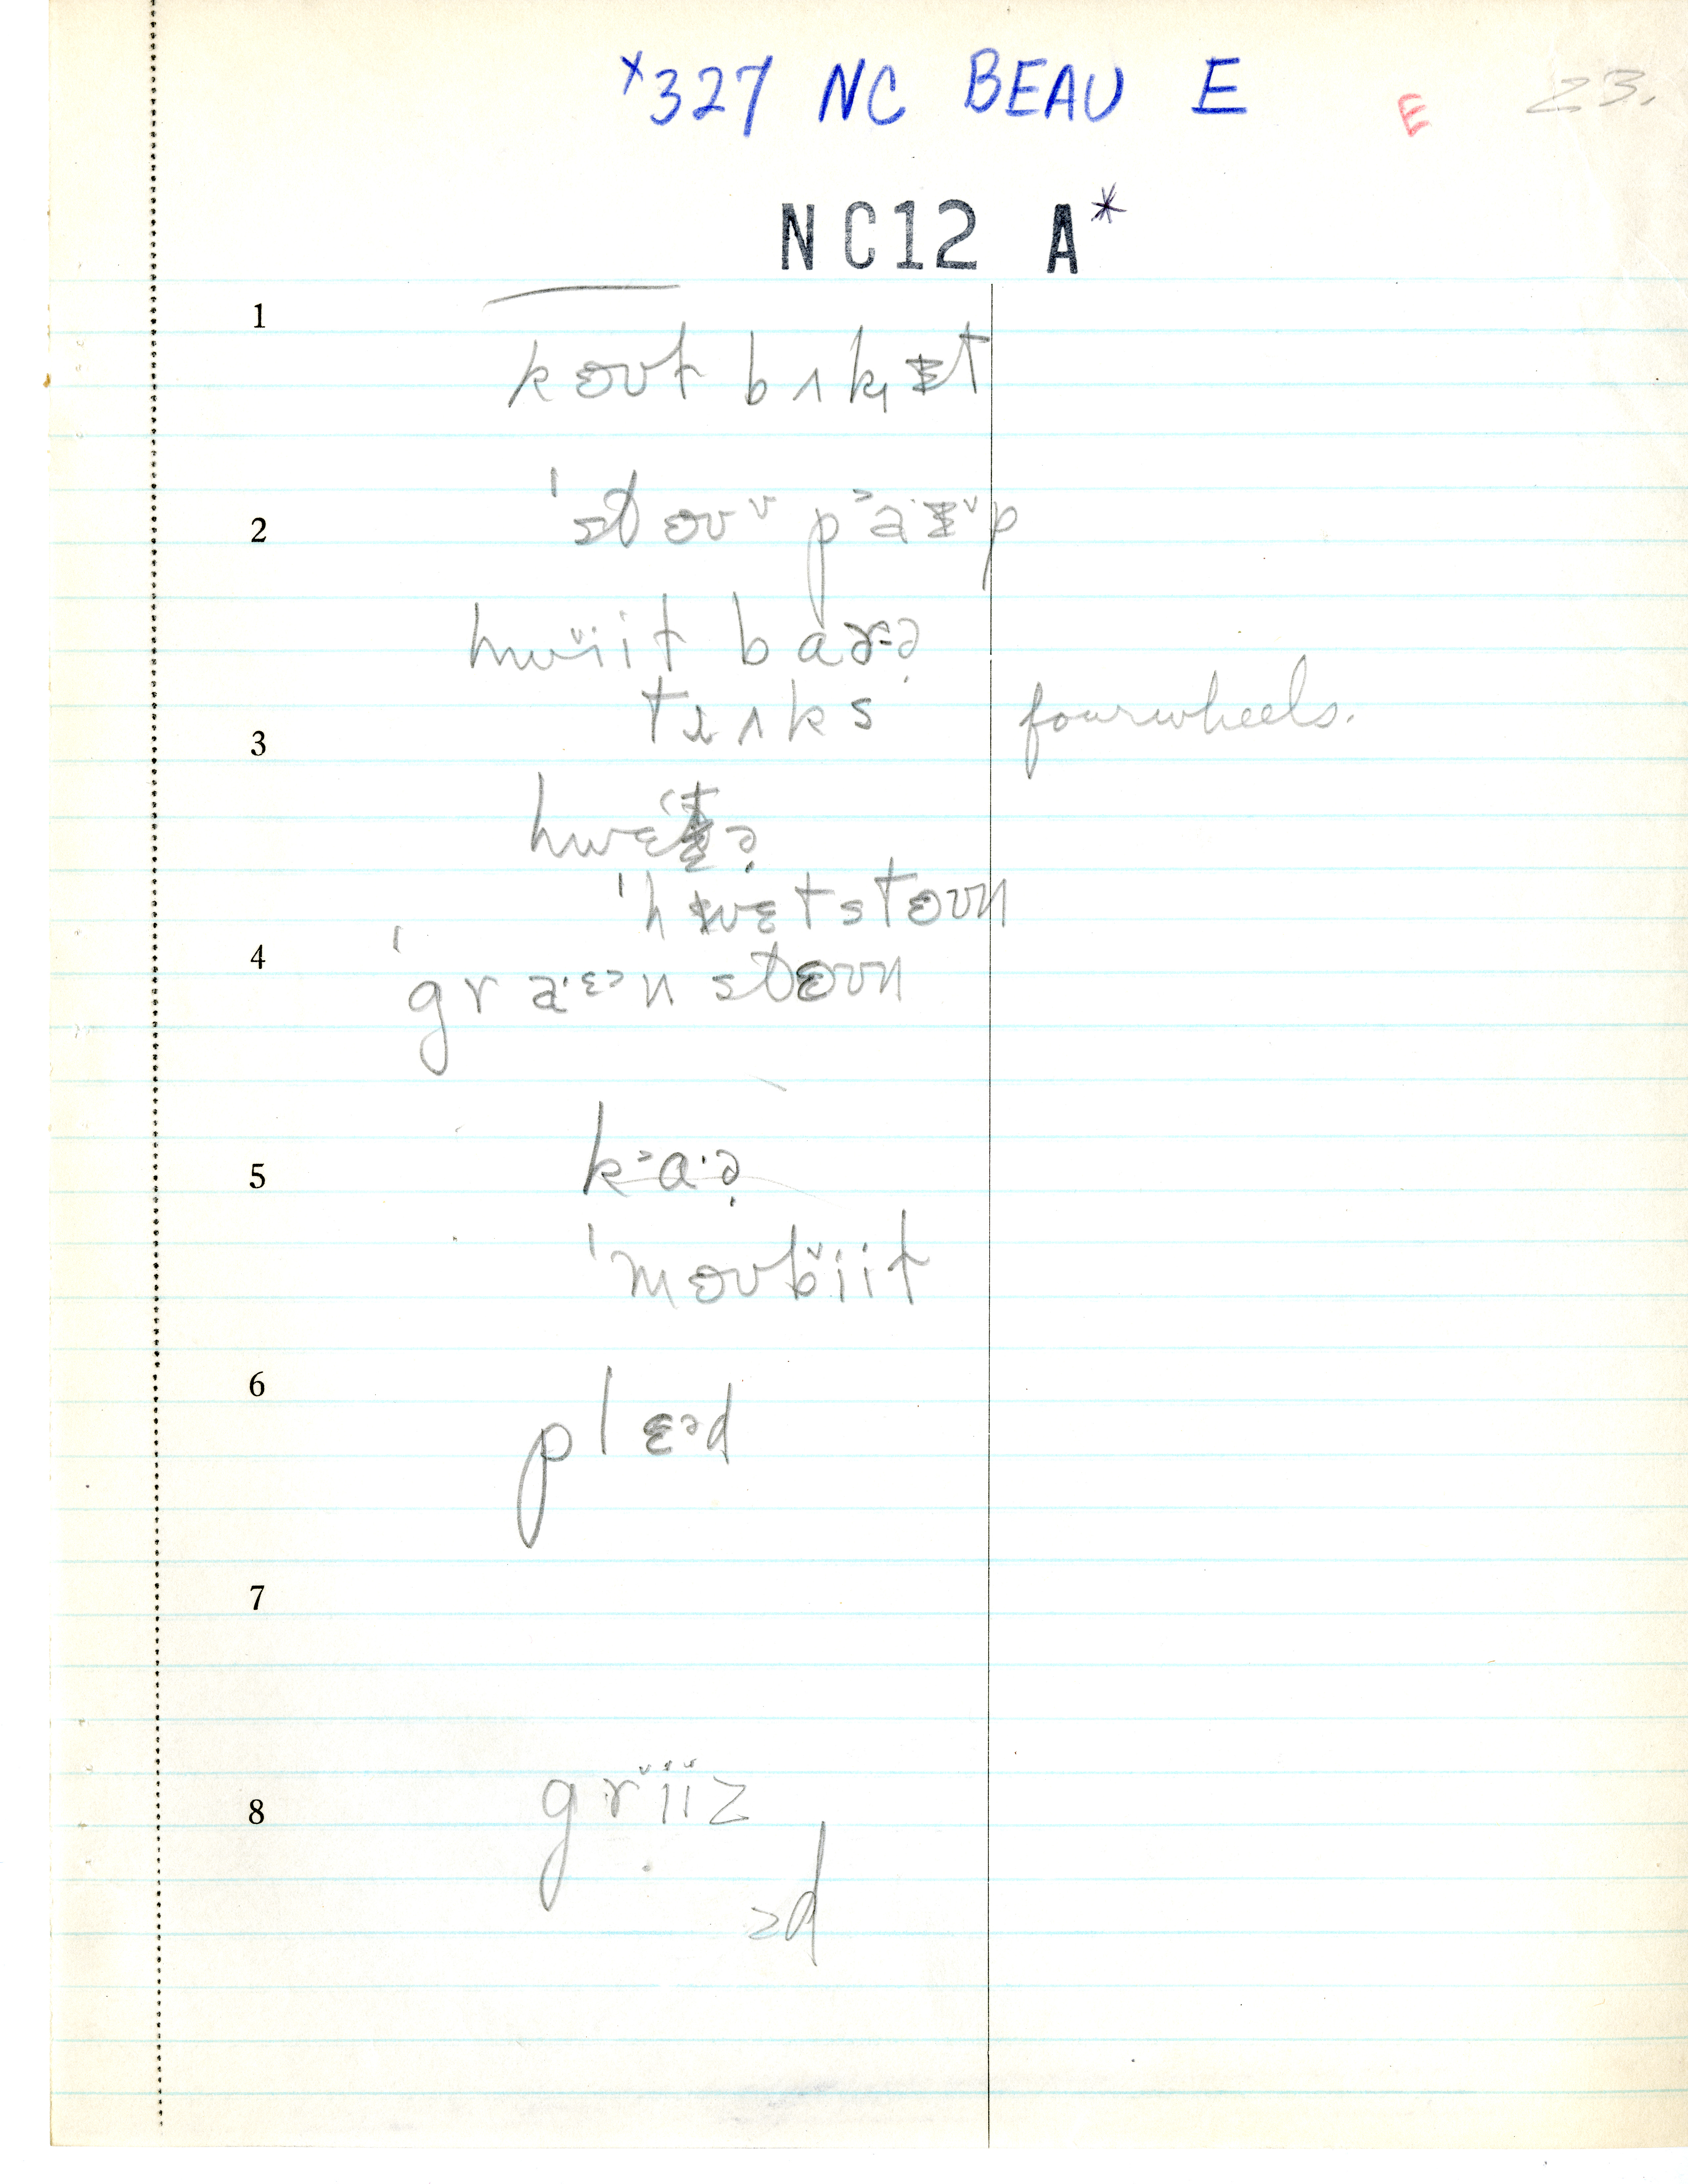 ×327 NC BEAU E
E
23.
NC12 A*
1
koʊt bʌk̟ɪt
2
ˈstoʊˇ pᵊa·ɪˇp
hwˇiit barə̣
3
trʌks fourwheels.
hwɛtə̣
ˈhwɛtstoʊn
4
ˈgra·ɛᵊn stoʊn
5
kᵊa·ə̣
ˈmoʊbˇiit
6
plɛᵊd
7
8
grˇiiz
ᵊd